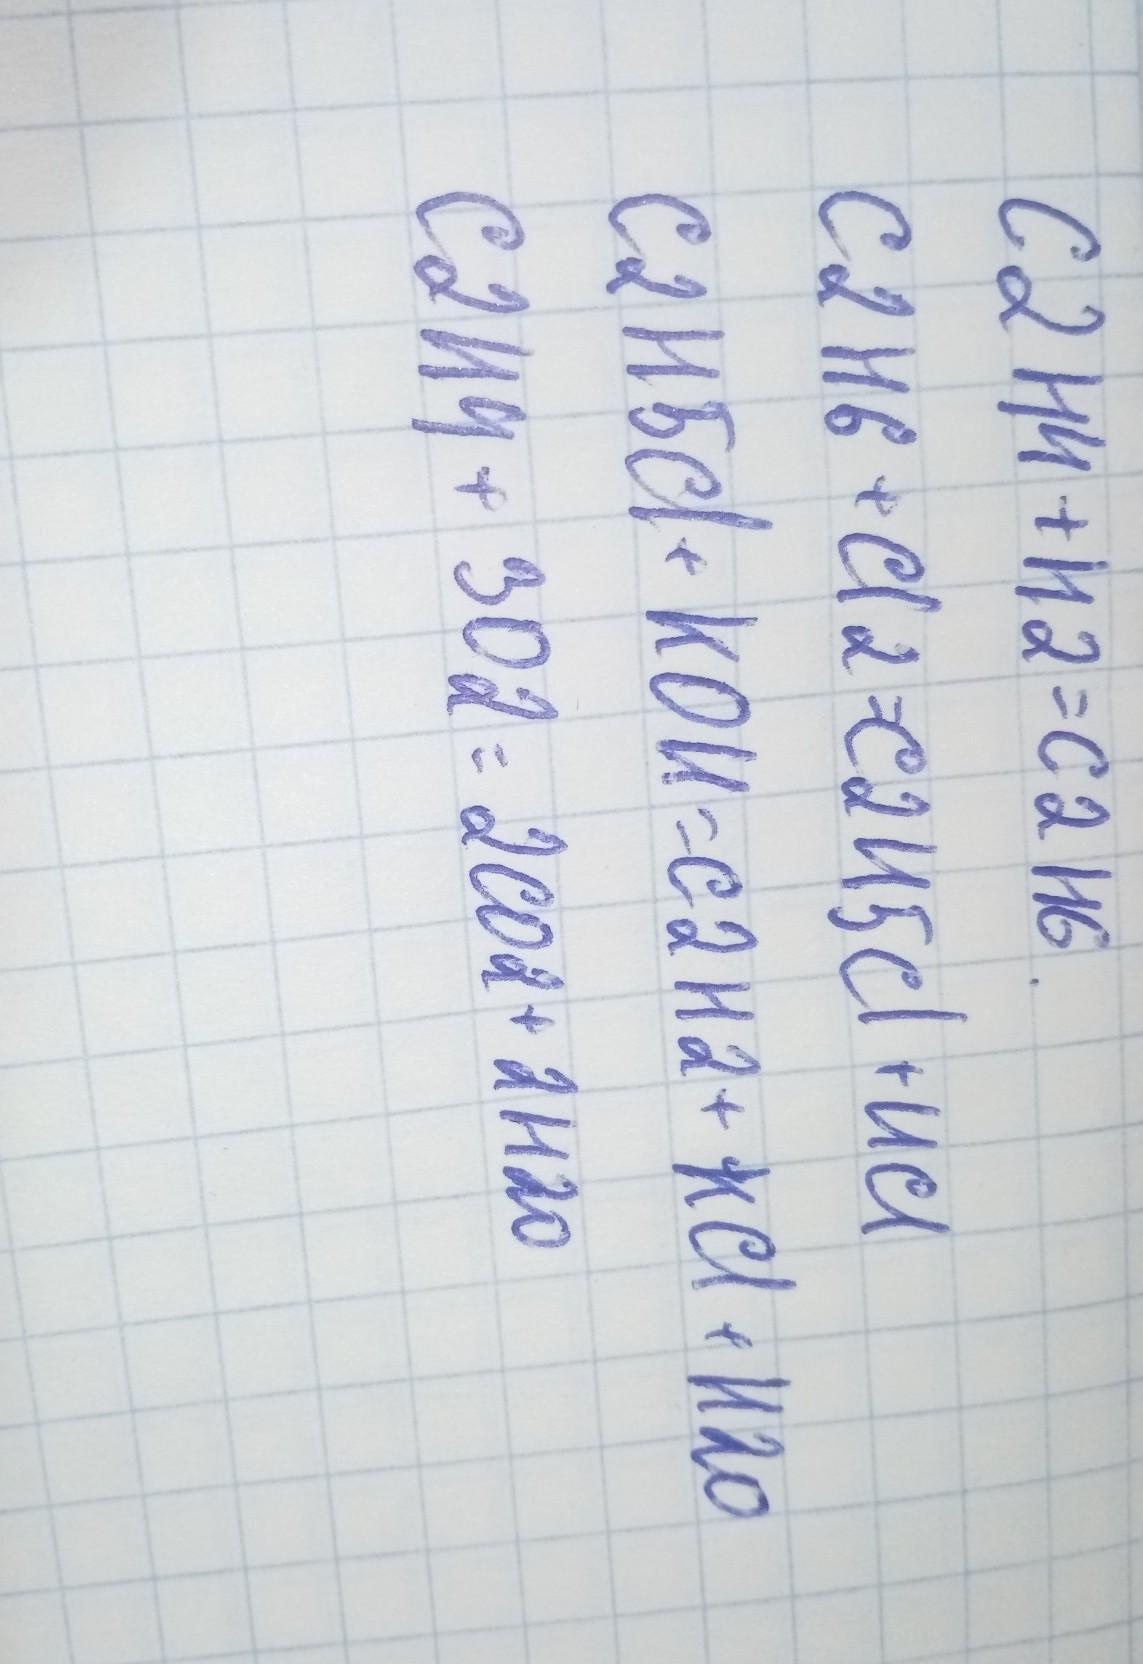 C2H4+H2=C2H6.
C2H6+Cl2=C2H5Cl+HCl
C2H5Cl+KOH=C2H2+KCl+H2O
C2H4+3O2=2CO2+2H2O